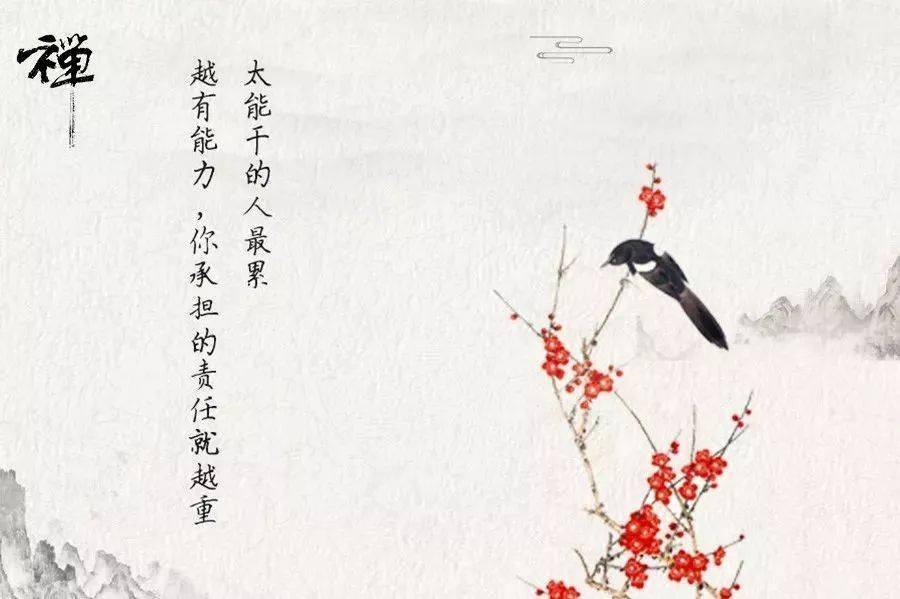 太能干的人最累
越有能力，你承担的责任就越重
禅